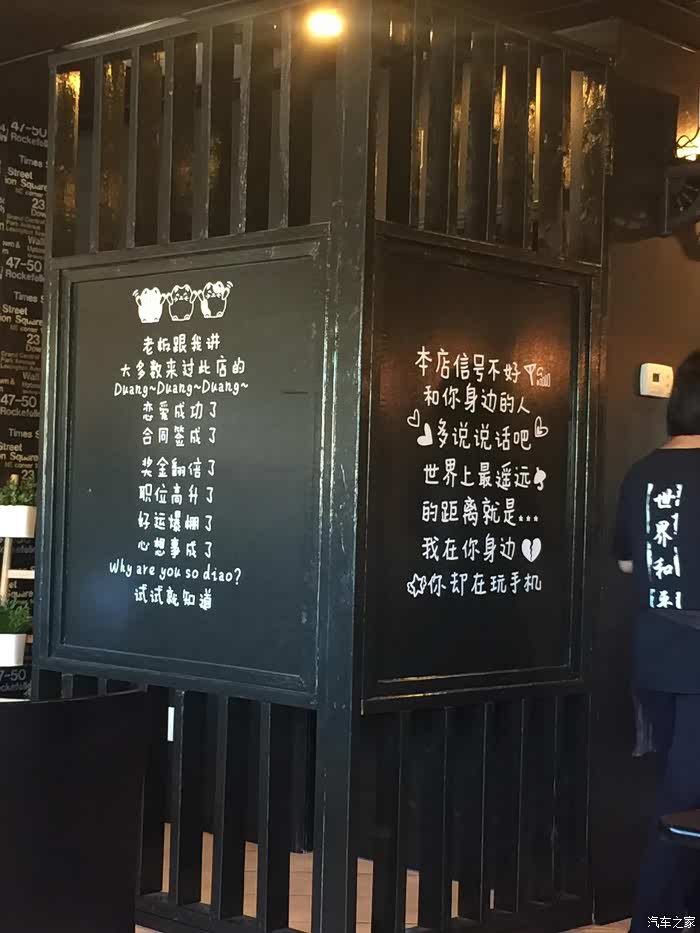 老板跟我讲
大多数来过此店的
Duang~Duang~Duang~
恋爱成功了
合同签成了
奖金翻倍了
职位高升了
好运爆棚了
心想事成了
Why are you so diao?
试试就知道
本店信号不好
和你身边的人
多说说话吧
世界上最遥远
的距离就是...
我在你身边
你却在玩手机
世界和平
47-50
Rockefeller
Times
Street
ion Square
23
Dow
Grand Central
Park Avenue
Lexington Avenue
Wall
47-50
Rockefelle
Times S
Street
ion Square
23
Wall
47-50
Rockefelle
Times
Street
Union Square
23
47-50
Rockefelle
汽车之家